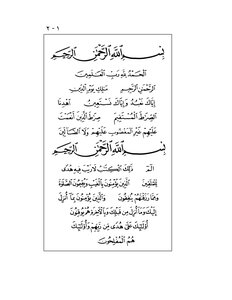 ٢ - ١
بِسْمِ ٱللَّهِ ٱلرَّحْمَٰنِ ٱلرَّحِيمِ
الْحَمْدُ لِلَّهِ رَبِّ الْعَٰلَمِينَ
الرَّحْمَٰنِ الرَّحِيمِ مَٰلِكِ يَوْمِ الدِّينِ
إِيَّاكَ نَعْبُدُ وَإِيَّاكَ نَسْتَعِينُ اهْدِنَا
الصِّرَٰطَ الْمُسْتَقِيمَ صِرَٰطَ الَّذِينَ أَنْعَمْتَ
عَلَيْهِمْ غَيْرِ الْمَغْضُوبِ عَلَيْهِمْ وَلَا الضَّآلِّينَ
بِسْمِ ٱللَّهِ ٱلرَّحْمَٰنِ ٱلرَّحِيمِ
الٓمٓ ذَٰلِكَ الْكِتَٰبُ لَا رَيْبَ فِيهِ هُدًى
لِلْمُتَّقِينَ الَّذِينَ يُؤْمِنُونَ بِالْغَيْبِ وَيُقِيمُونَ الصَّلَوٰةَ
وَمِمَّا رَزَقْنَٰهُمْ يُنْفِقُونَ وَالَّذِينَ يُؤْمِنُونَ بِمَآ أُنْزِلَ
إِلَيْكَ وَمَآ أُنْزِلَ مِنْ قَبْلِكَ وَبِالْءَاخِرَةِ هُمْ يُوقِنُونَ
أُولَٰٓئِكَ عَلَىٰ هُدًى مِنْ رَبِّهِمْ وَأُولَٰٓئِكَ
هُمُ الْمُفْلِحُونَ